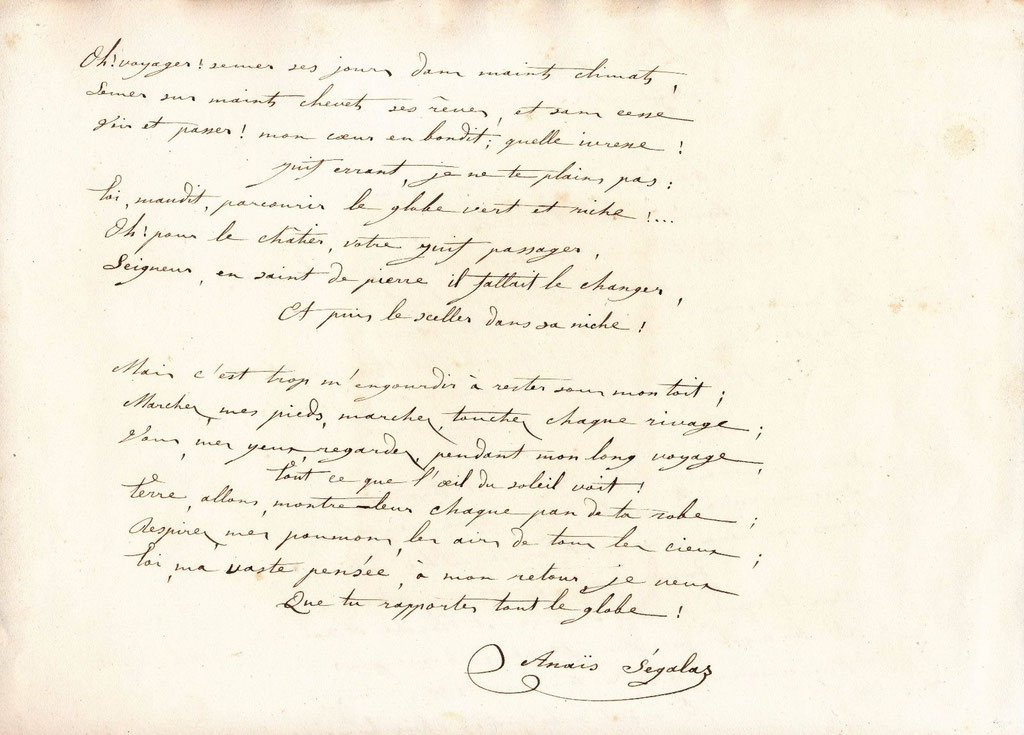 Oh! voyager! semer ses jours dans maints climats,
Semer sur maints chevets ses rêves, et sans cesse
Voir et passer! mon cœur en bondit; quelle ivresse!
Juif errant, je ne te plains pas:
Toi, maudit, parcourir le globe vert et riche!...
Oh! pour le châtier, votre juif passager,
Seigneur, en saint de pierre il fallait le changer,
Et puis le sceller dans sa niche!
Mais c'est trop m'engourdir à rester sous mon toit;
Marchez, mes pieds, marchez, touchez chaque rivage;
Vous, mes yeux, regardez, pendant mon long voyage,
Tout ce que l'œil du soleil voit!
Terre, allons, montre-leur chaque pan de ta robe;
Respirez, mes poumons, les airs de tous les cieux;
Toi, ma vaste pensée, à mon retour, je veux
Que tu rapportes tout le globe!
Anaïs Ségalas